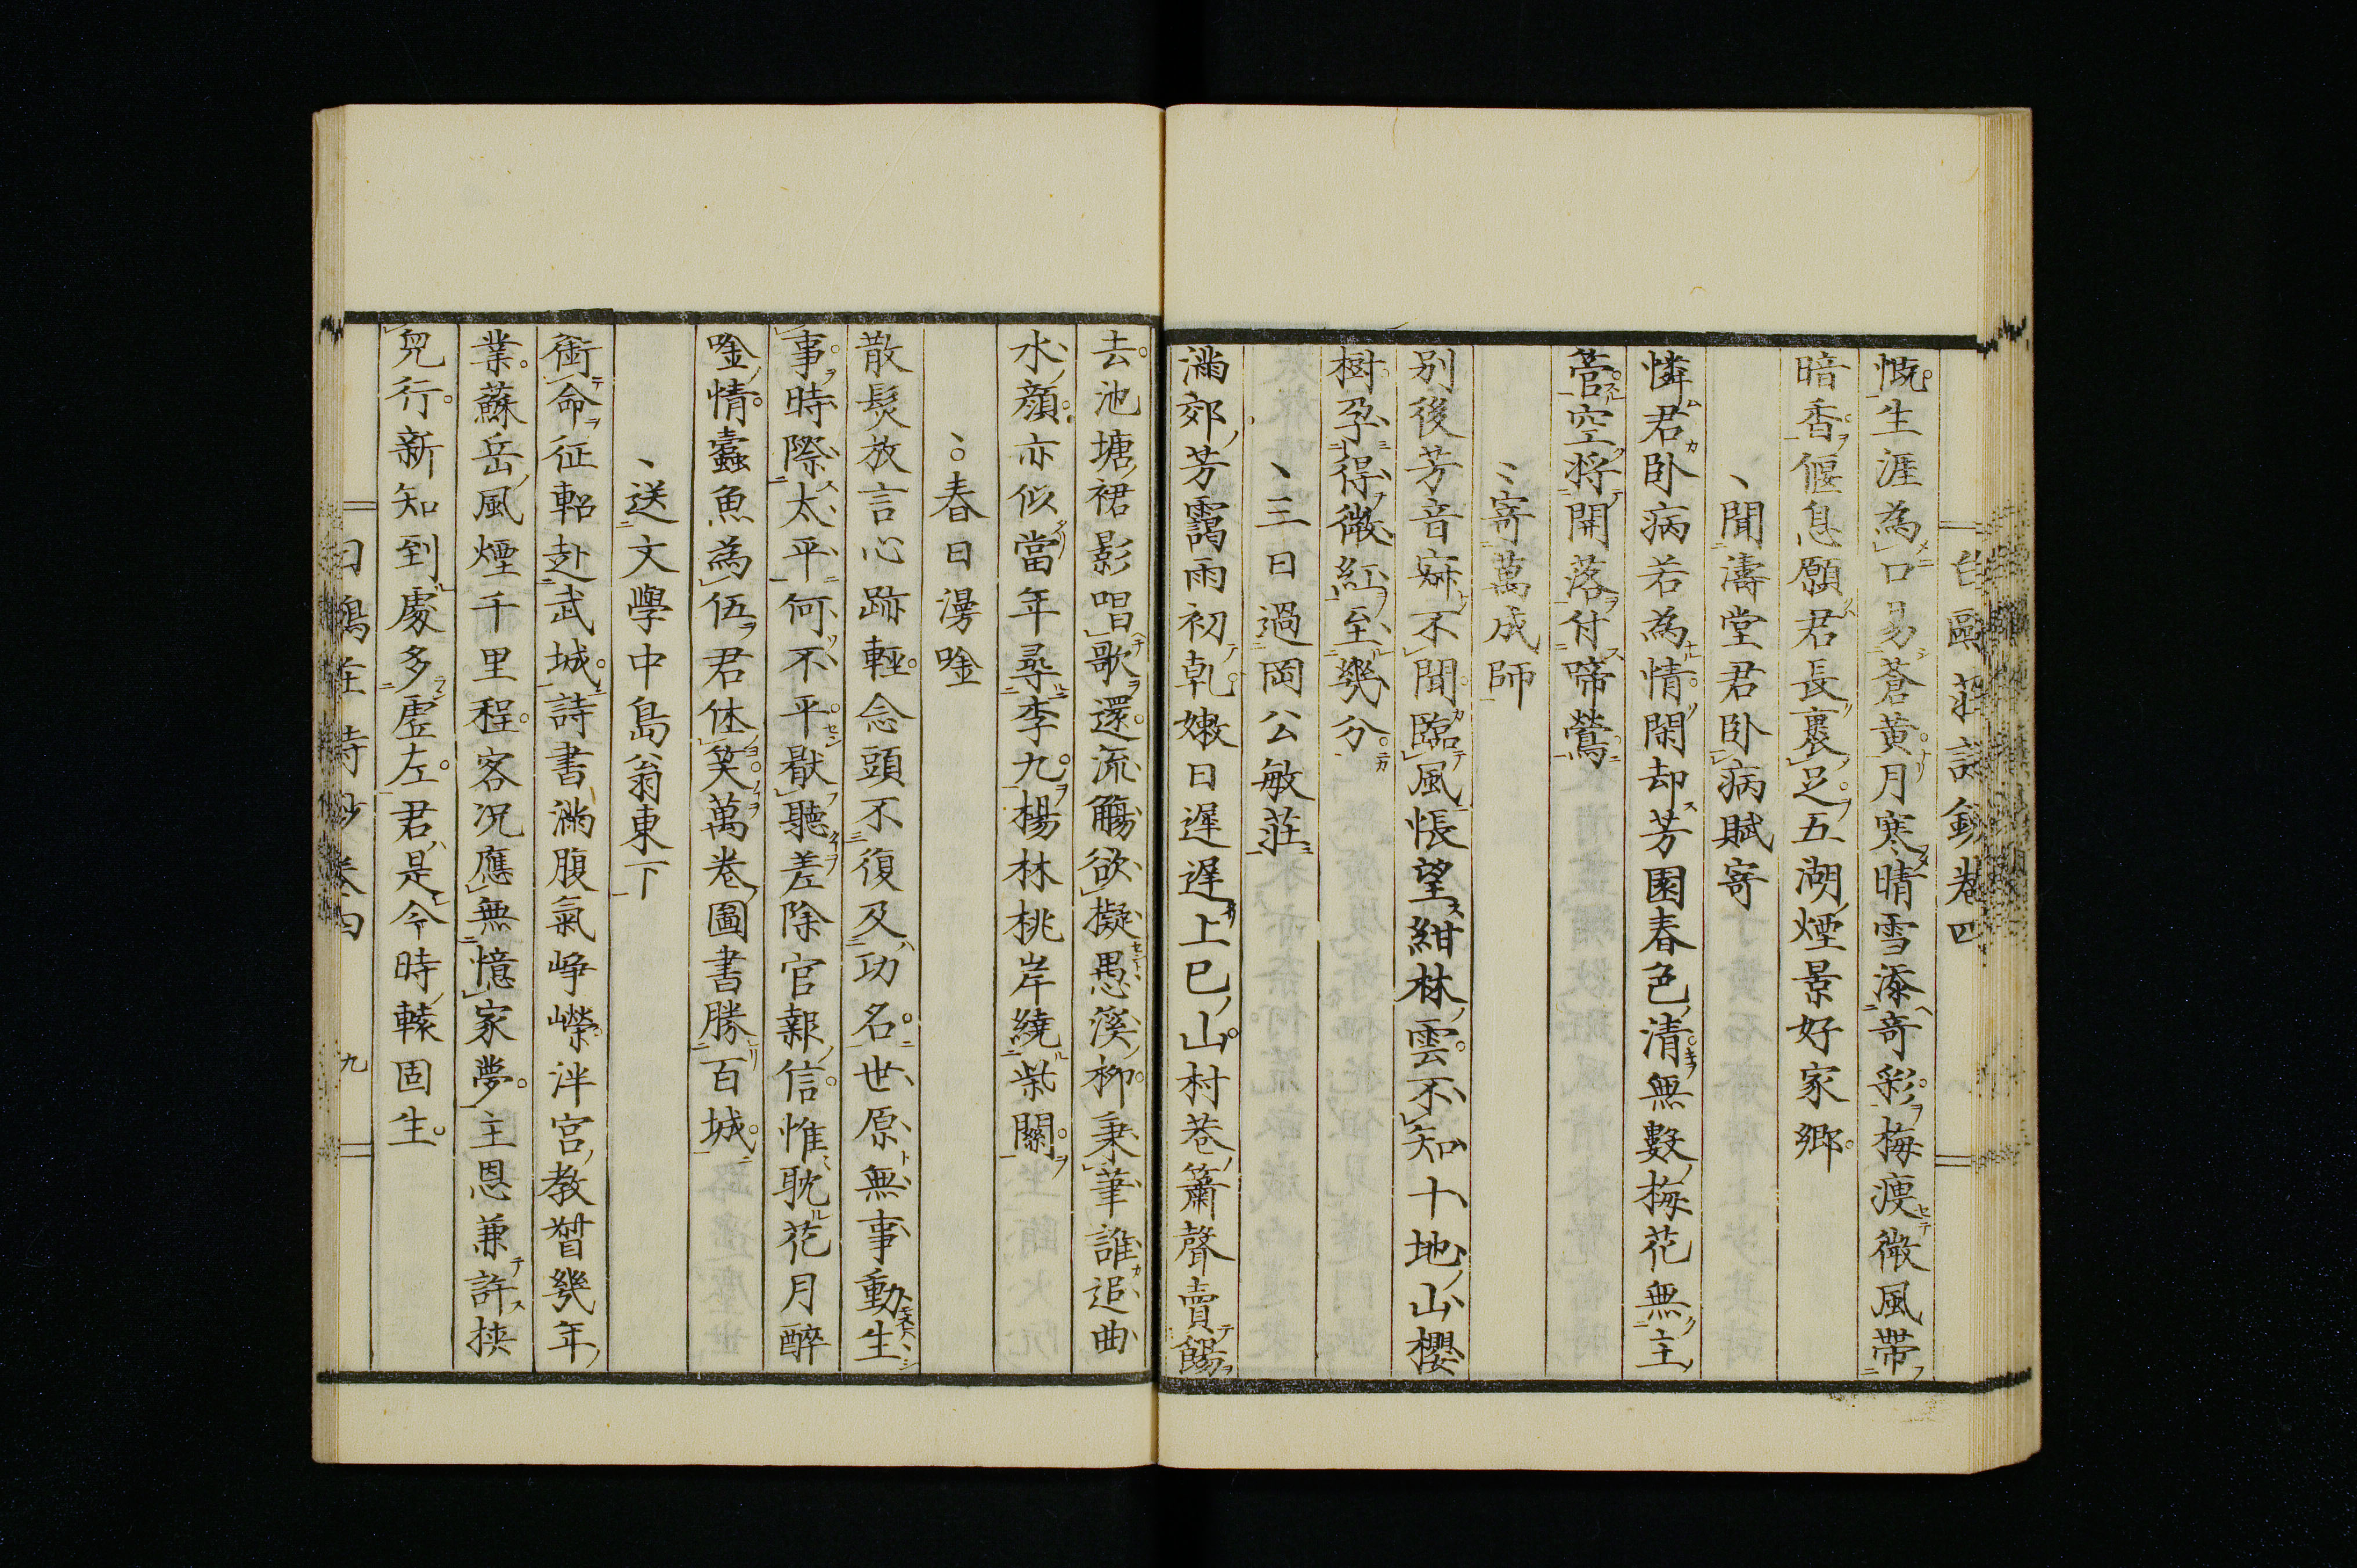 慨生涯為口易蒼黄月寒晴雪添奇彩梅瘦微風帶
暗香偃息願君長裹足五湖煙景好家鄉
聞濤堂君卧病賦寄
憐君卧病若為情閑却芳園春色清無數梅花無主
管空將開落付啼鶯
寄萬成師
别後芳音寂不聞臨風悵望紺林雲不知十地山櫻
樹孕得微紅至幾分
三日過岡公敏莊
滿郊芳靄雨初乾嫩日遲遲上巳山村巷簫聲賣餳
去池塘裙影唱歌還流觴欲擬愚溪柳秉筆誰追曲
水顔亦似當年尋李九楊林桃岸繞柴關
春日漫唫
散髮放言心跡輕念頭不復及功名世原無事動生
事時際太平何不平厭聽差除官報信惟耽花月醉
唫情蠹魚為伍君休笑萬卷圖書勝百城
送文學中島翁東下
銜命征軺赴武城詩書滿腹氣崢嶸泮宮教督幾年
業蘇岳風煙千里程客況應無憶家夢主恩兼許挾
兒行新知到處多虛左君是今時轅固生
白鷗莊詩鈔卷四 九